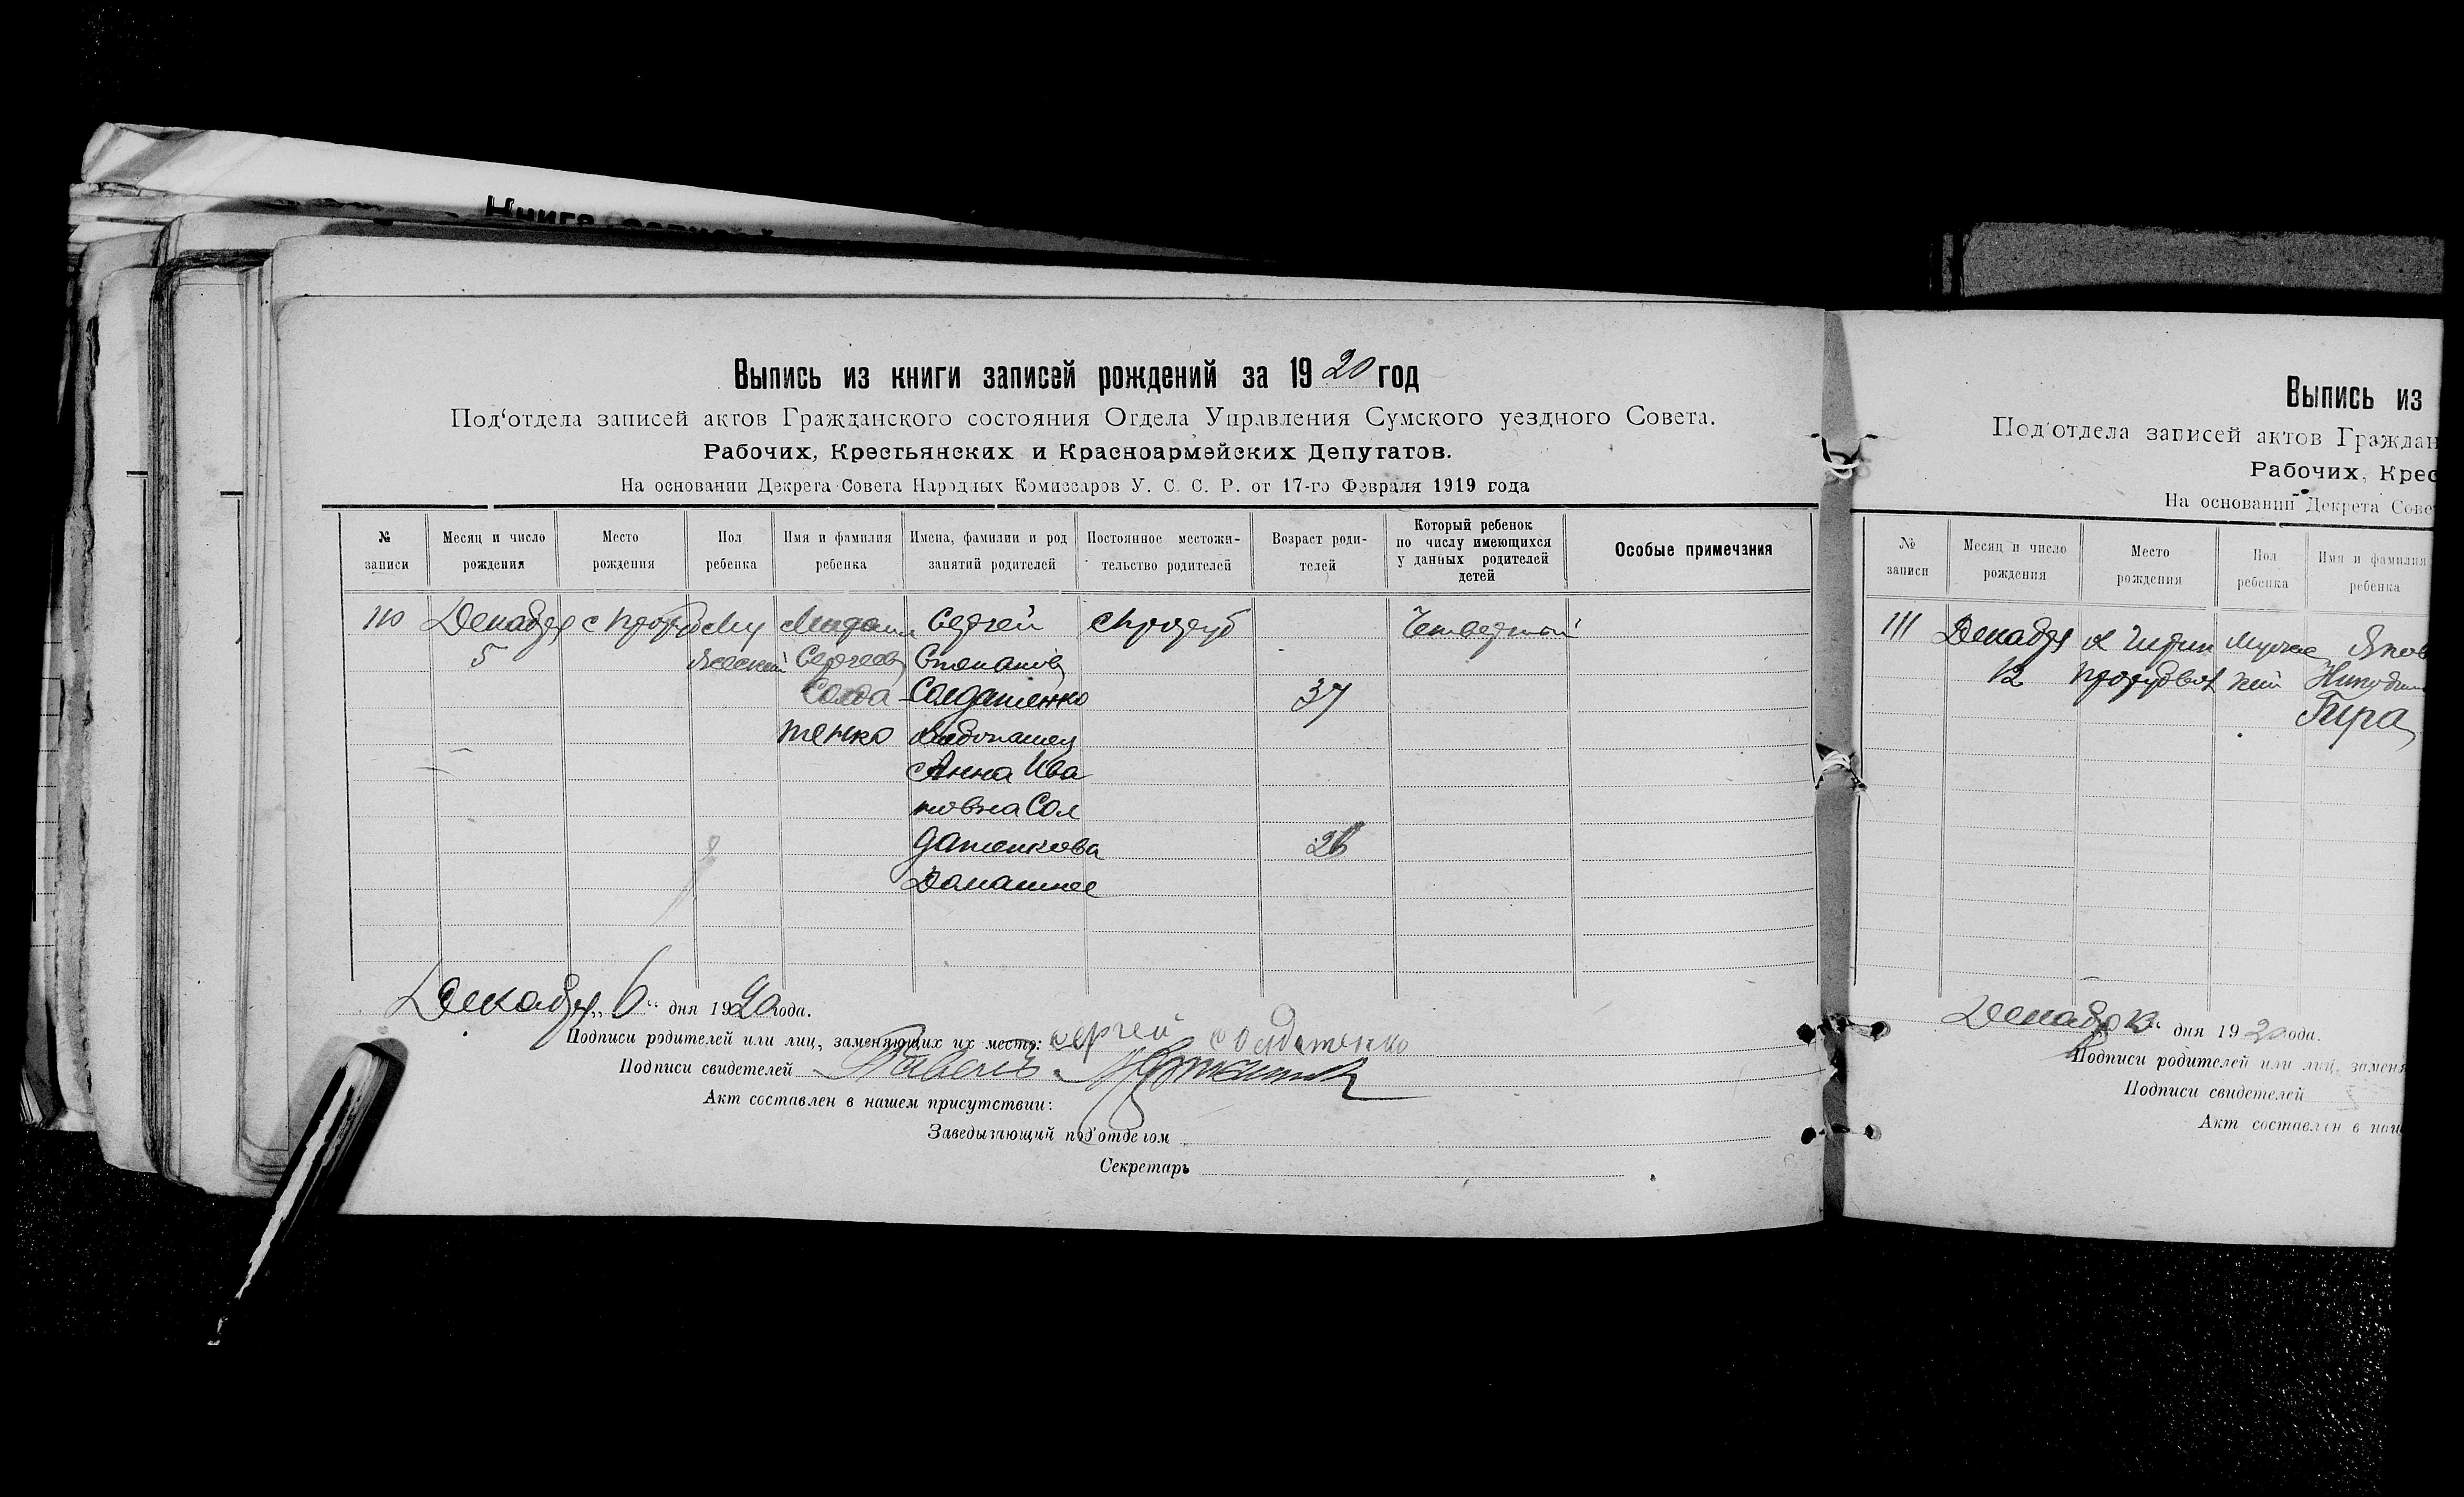 Книга записей
Выпись из книги записей рождений за 1920 год
Под'отдела записей актов Гражданского состояния Отдела Управления Сумского уездного Совета.
Рабочих, Крестьянских и Красноармейских Депутатов.
На основании Декрета Совета Народных Комиссаров У. С. С. Р. от 17-го Февраля 1919 года
№ записи
Месяц и число рождения
Место рождения
Пол ребенка
Имя и фамилия ребенка
Имена, фамилии и род занятий родителей
Постоянное местожительство родителей
Возраст родителей
Который ребенок по числу имеющихся у данных родителей детей
Особые примечания
110 Декабря Сергей
5 Сергеев Степанов
Солда Солдатенко 37
тенко
Анна Ива
новна Сол
датенкова 26
Домашнее
Декабря „6“ дня 1920 года.
Подписи родителей или лиц, заменяющих их место: Сергей Солдатенко
Подписи свидетелей Павель
Акт составлен в нашем присутствии:
Заведывающий под'отделом
Секретарь
Выпись из
Под'отдела записей актов Граждан
Рабочих, Крес
На основании Декрета Сове
№ записи
Месяц и число рождения
Место рождения
Пол ребенка
Имя и фамилия ребенка
111 Декабря Яков
12
Гира
Декабря 13“ дня 1920 ода.
Подписи родителей или лиц, заменя
Подписи свидетелей
Акт составлен в наш